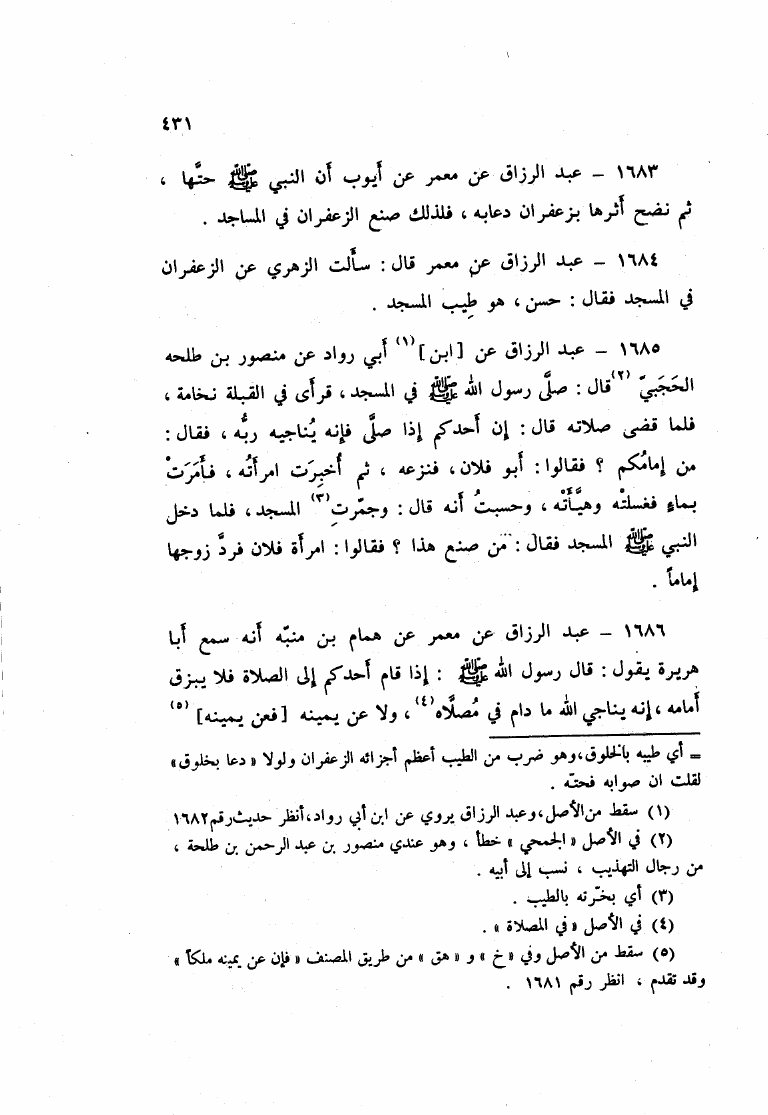 ٤٣١
١٦٨٣ – عبد الرزاق عن معمر عن أيوب أن النبي ﷺ حتَّها ،
ثم نضح أثرها بزعفران دعابه ، فلذلك صنع الزعفران في المساجد .
١٦٨٤ – عبد الرزاق عن معمر قال : سألت الزهري عن الزعفران
في المسجد فقال : حسن ، هو طِيب المسجد .
١٦٨٥ – عبد الرزاق عن [ ابن ] (١) أبي رواد عن منصور بن طلحه
الحَجَبيّ (٢) قال : صلَّى رسول الله ﷺ في المسجد ، فرأى في القبلة نخامة ،
فلما قضى صلاته قال : إن أحدكم إذا صلَّى فإنه يُناجيه ربُّه ، فقال :
من إمامُكم ؟ فقالوا : أبو فلان ، فنزعه ، ثم أُخبِرَت امرأتُه ، فأمَرَتْ
بماءٍ فغسلتْه وهيَّأتْه ، وحسبتُ أنه قال : وجمّرتِ (٣) المسجد ، فلما دخل
النبي ﷺ المسجد فقال : مَن صنع هذا ؟ فقالوا : امرأة فلان فردَّ زوجها
إماماً .
١٦٨٦ – عبد الرزاق عن معمر عن همام بن منبّه أنه سمع أبا
هريرة يقول : قال رسول الله ﷺ : إذا قام أحدكم إلى الصلاة فلا يبزق
أمامه ، إنه يناجي الله ما دام في مُصلَّاه (٤) ، ولا عن يمينه [ فعن يمينه ] (٥)
= أي طيبه بالخلوق ، وهو ضرب من الطيب أعظم أجزائه الزعفران ولولا « دعا بخلوق »
لقلت ان صوابه فحتّه .
(١) سقط من الأصل ، وعبد الرزاق يروي عن ابن أبي رواد ، أنظر حديث رقم ١٦٨٢
(٢) في الأصل « الجمحي » خطأ ، وهو عندي منصور بن عبد الرحمن بن طلحة ،
من رجال التهذيب ، نسب إلى أبيه .
(٣) أي بخّرته بالطيب .
(٤) في الأصل « في الصلاة » .
(٥) سقط من الأصل وفي « خ » و « هق » من طريق المصنف « فإن عن يمينه ملكاً »
وقد تقدم ، انظر رقم ١٦٨١ .